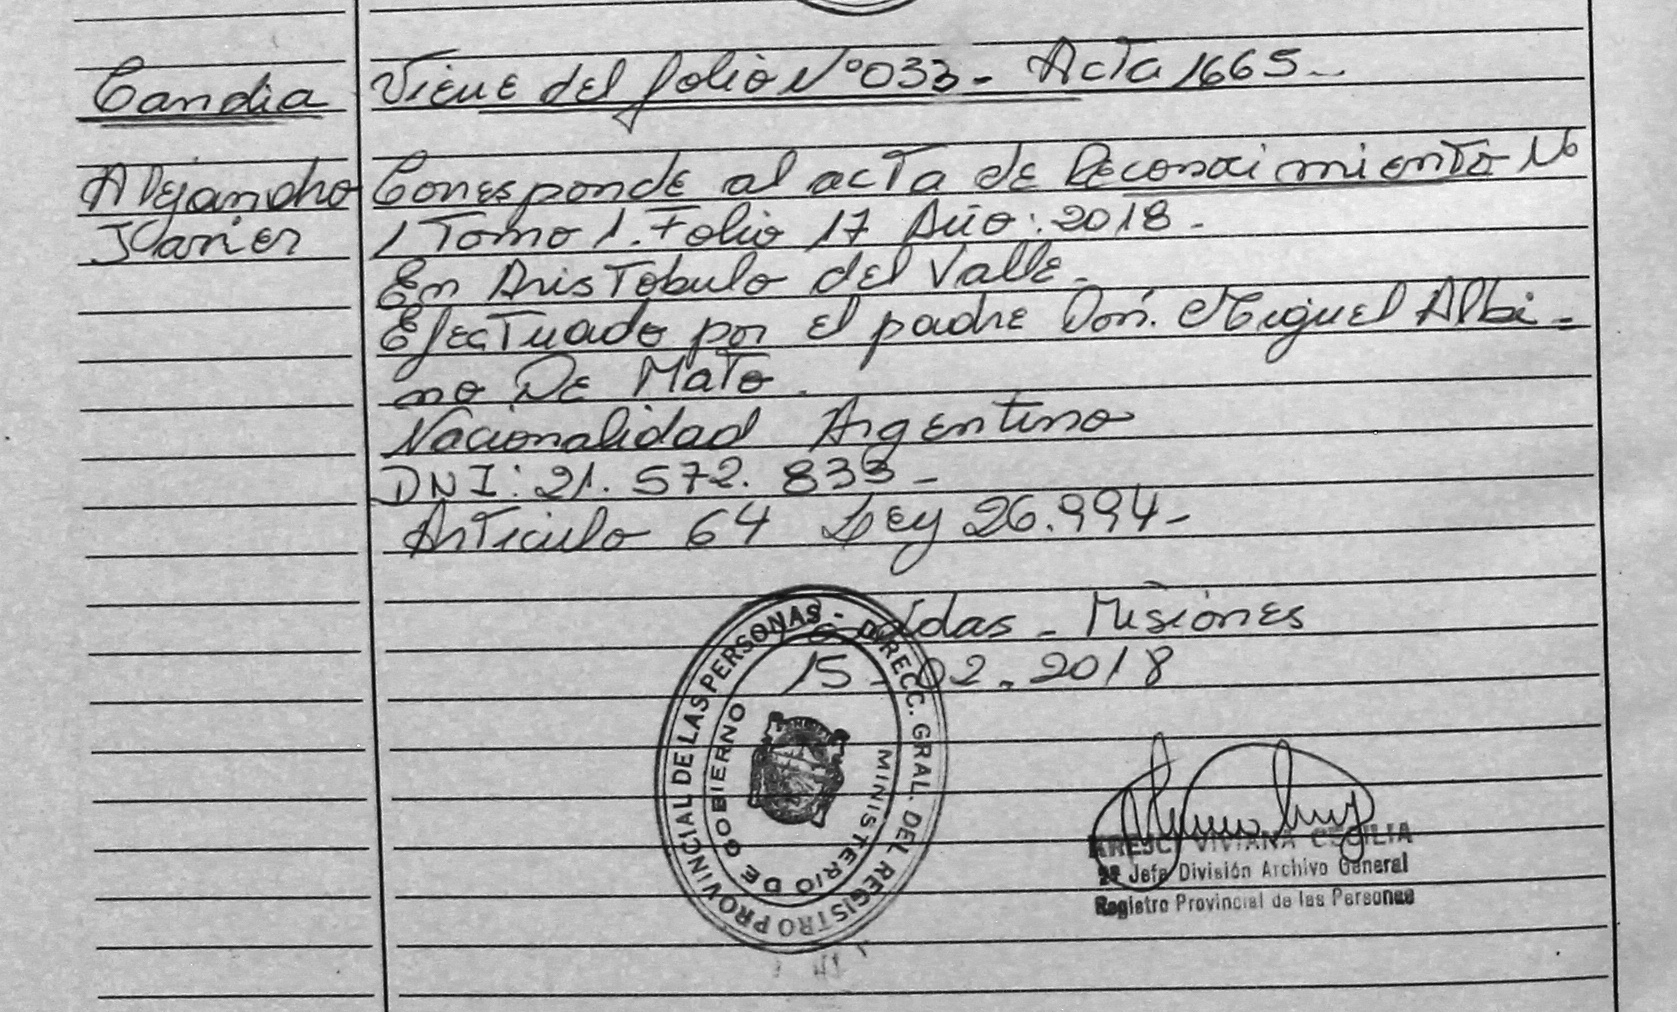 Candia
Alejandro
Javier
Viene del folio Nº 033 - Acta 1665 -
Corresponde al acta de Reconocimiento Nº
1 Tomo 1. Folio 17 Año: 2018 -
En Aristobulo del Valle -
Efectuado por el padre Don. Miguel Albi -
no De Mato.
Nacionalidad Argentino
DNI: 21. 572. 833 -
Articulo 64 Ley 26.994 -
Posadas - Misiones
15 - 02 - 2018
DIRECC. GRAL. DEL REGISTRO PROVINCIAL DE LAS PERSONAS -
MINISTERIO DE GOBIERNO
VIVIANA CECILIA
2ª Jefa División Archivo General
Registro Provincial de las Personas